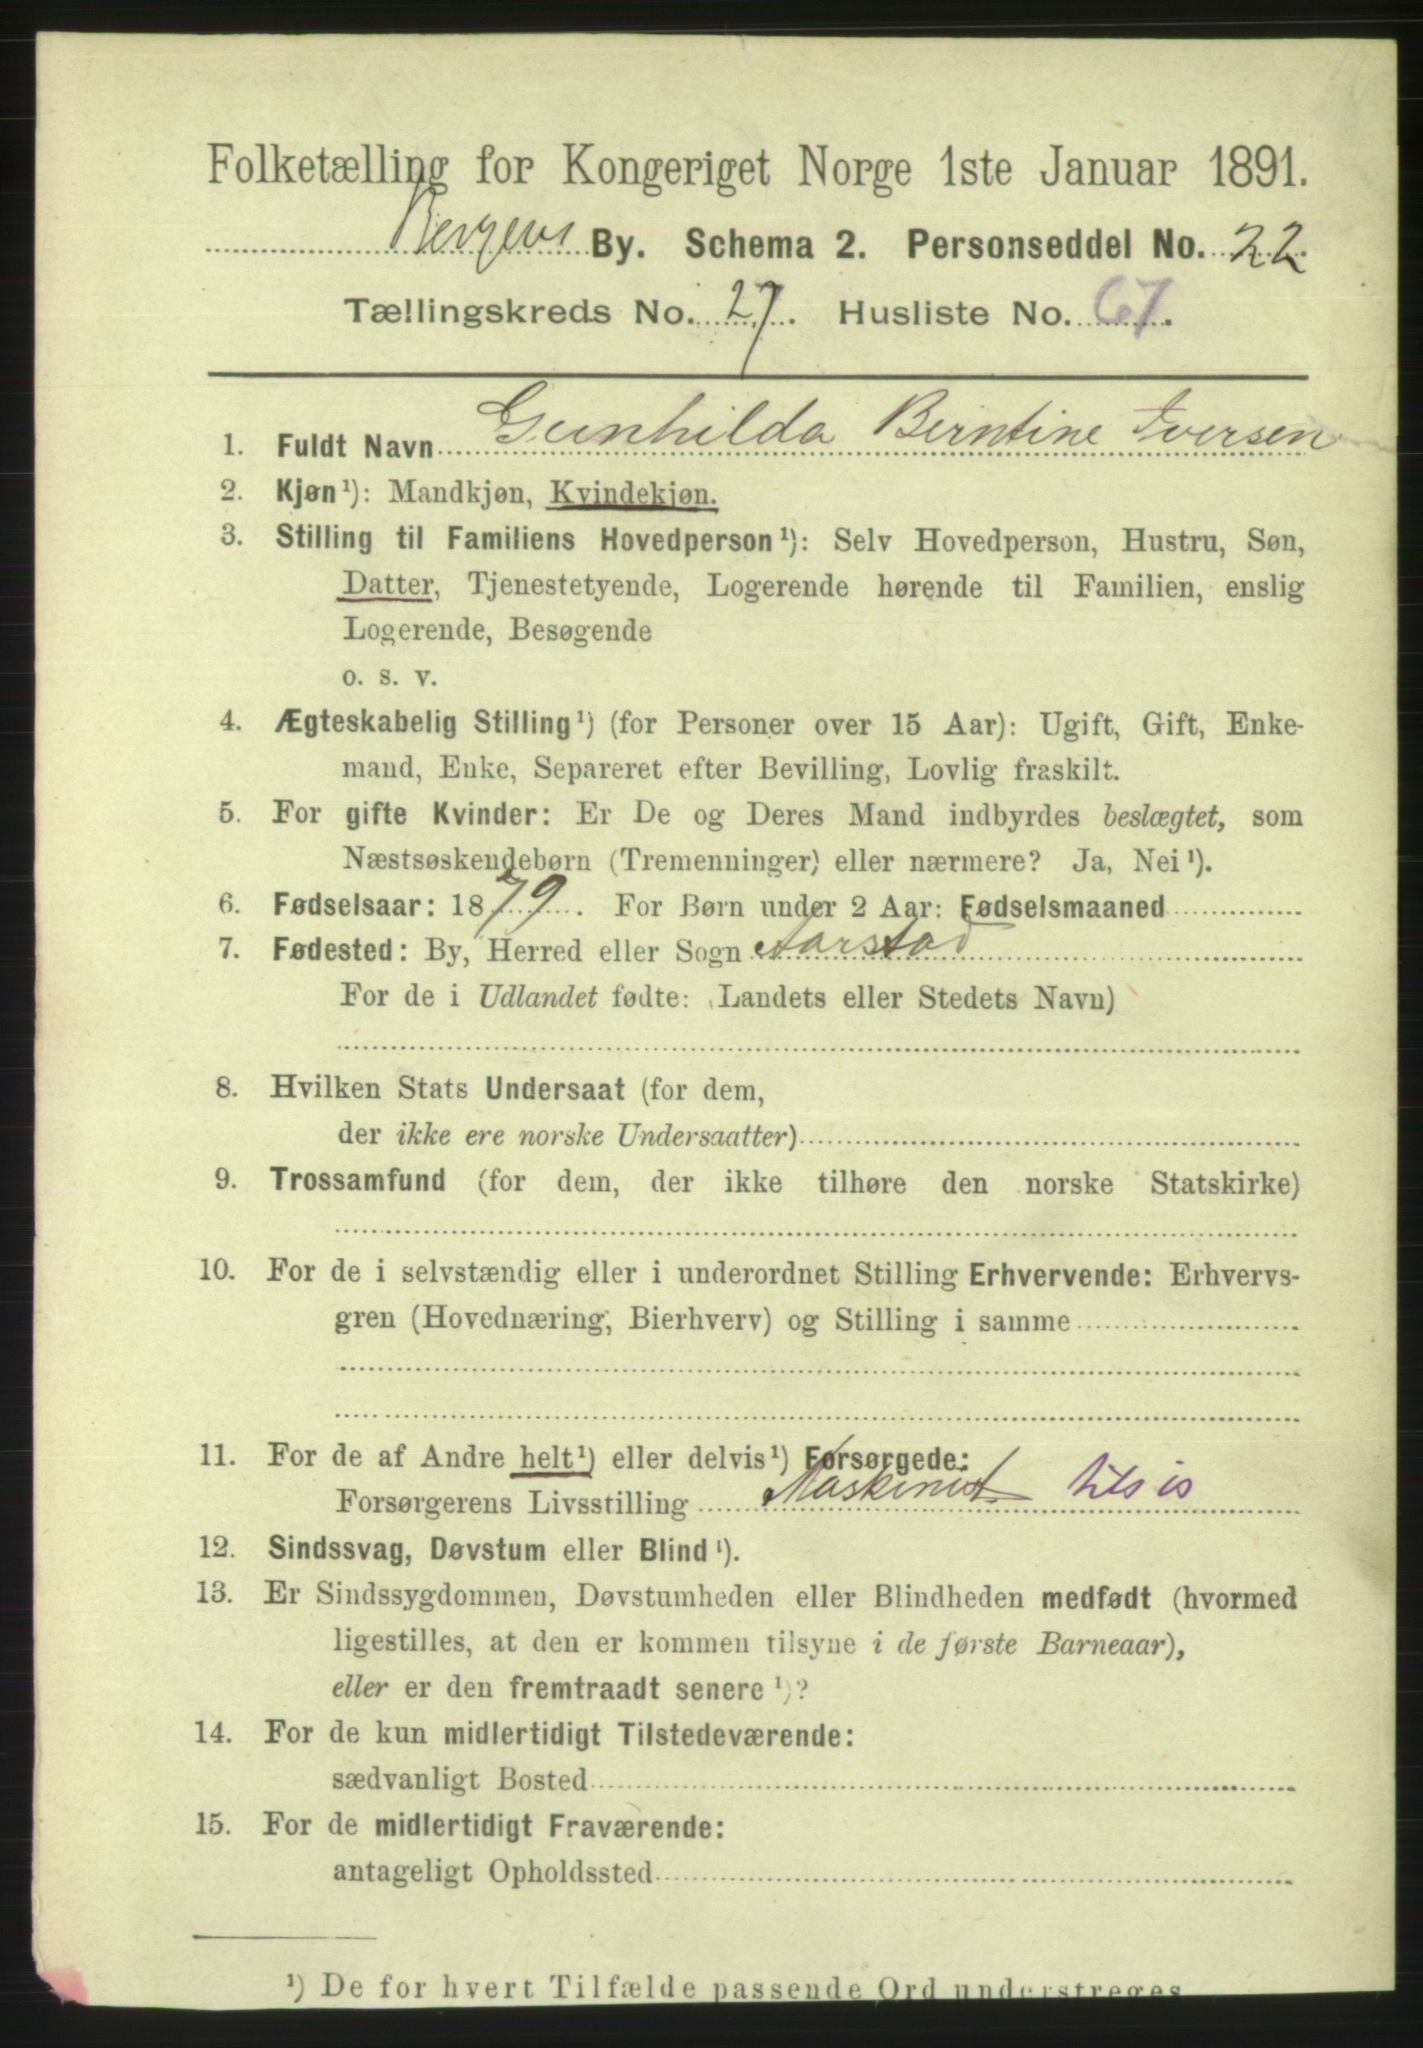 Folketælling for Kongeriget Norge 1ste Januar 1891.
Bergens By. Schema 2. Personseddel No. 22.
Tællingskreds No. 27. Husliste No. 67.
1. Fuldt Navn Gunhilda Berntine Iversen
2. Kjøn¹): Mandkjøn, Kvindekjøn.
3. Stilling til Familiens Hovedperson¹): Selv Hovedperson, Hustru, Søn,
Datter, Tjenestetyende, Logerende hørende til Familien, enslig
Logerende, Besøgende
o. s. v.
4. Ægteskabelig Stilling¹) (for Personer over 15 Aar): Ugift, Gift, Enke-
mand, Enke, Separeret efter Bevilling, Lovlig fraskilt.
5. For gifte Kvinder: Er De og Deres Mand indbyrdes beslægtet, som
Næstsøskendebørn (Tremenninger) eller nærmere? Ja, Nei¹).
6. Fødselsaar: 1879. For Børn under 2 Aar: Fødselsmaaned
7. Fødested: By, Herred eller Sogn Aarstad
For de i Udlandet fødte: (Landets eller Stedets Navn)
8. Hvilken Stats Undersaat (for dem,
der ikke ere norske Undersaatter)
9. Trossamfund (for dem, der ikke tilhøre den norske Statskirke)
10. For de i selvstændig eller i underordnet Stilling Erhvervende: Erhvervs-
gren (Hovednæring, Bierhverv) og Stilling i samme
11. For de af Andre helt¹) eller delvis¹) Forsørgede:
Forsørgerens Livsstilling Maskinist
12. Sindssvag, Døvstum eller Blind¹).
13. Er Sindssygdommen, Døvstumheden eller Blindheden medfødt (hvormed
ligestilles, at den er kommen tilsyne i de første Barneaar),
eller er den fremtraadt senere¹)?
14. For de kun midlertidigt Tilstedeværende:
sædvanligt Bosted
15. For de midlertidigt Fraværende:
antageligt Opholdssted
¹) De for hvert Tilfælde passende Ord understreges.